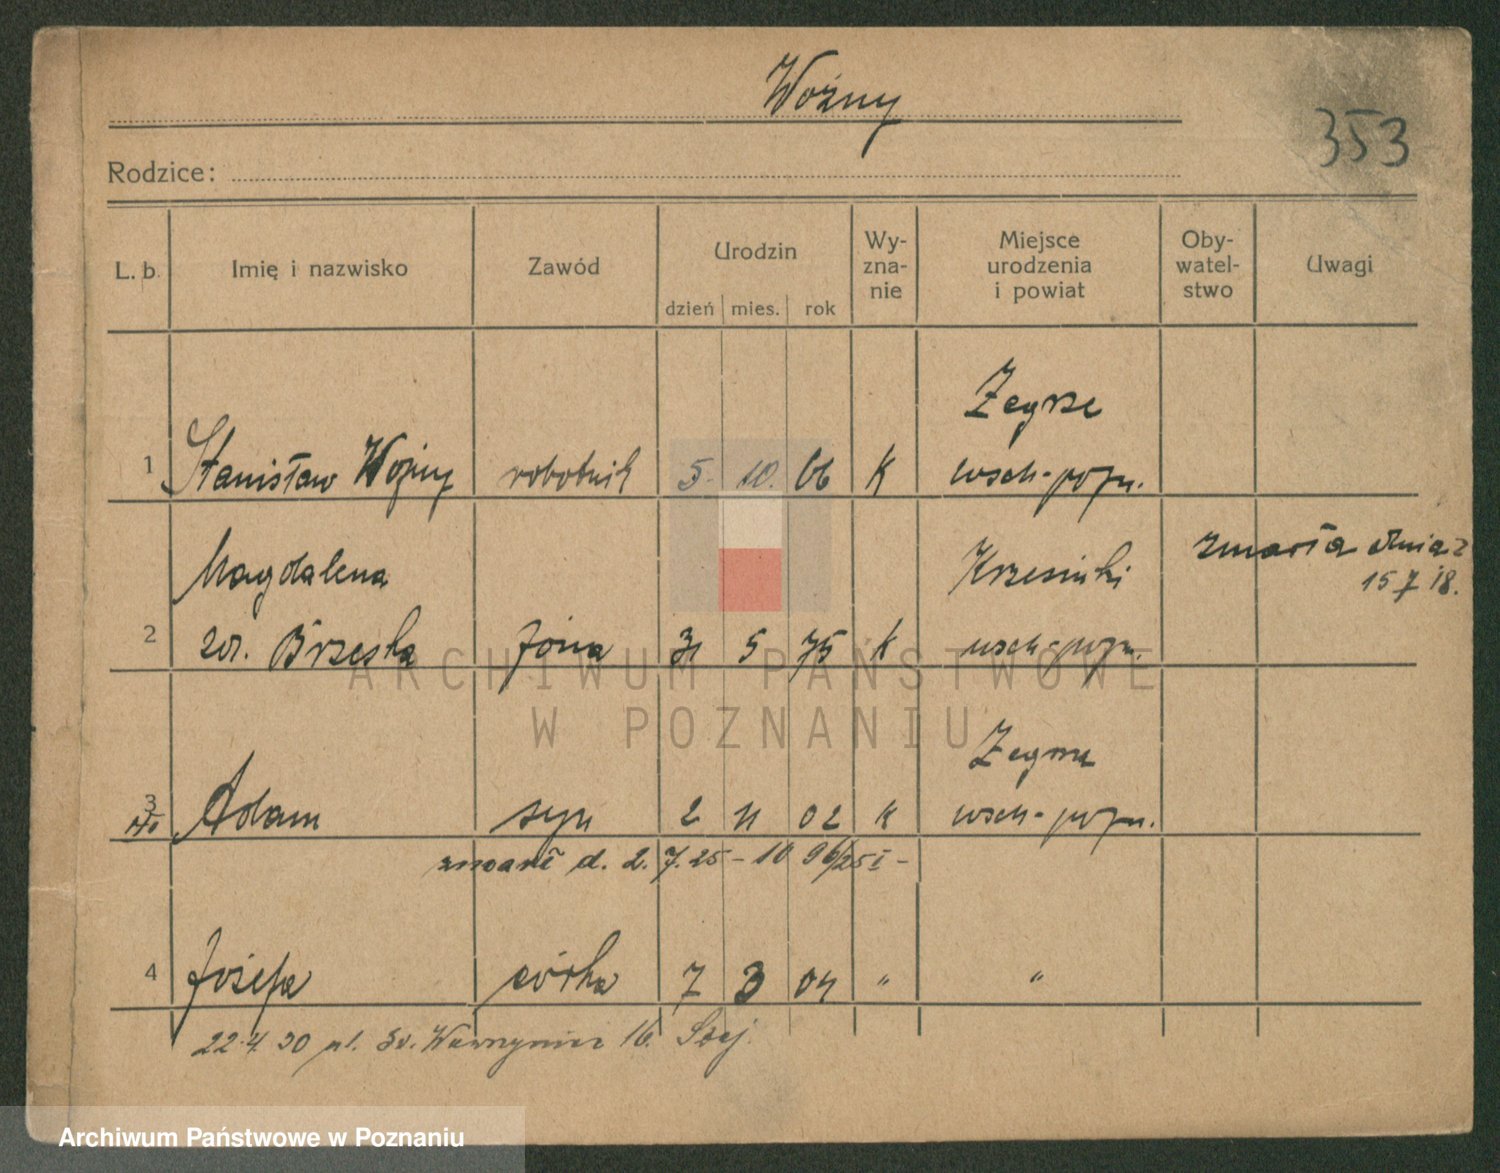 Woźny
353
Rodzice:
L. b. Imię i nazwisko Zawód Urodzin dzień mies. rok Wy-zna-nie Miejsce urodzenia i powiat Oby-watel-stwo Uwagi
Zegrze
1 Stanisław Woźny robotnik 5. 10. 66 K wsch-pozn.
Magdalena Krzesinki zmarła dnia
15 7 18.
2 ur. Brzeska żona 31 5 75 K wsch-pozn.
ARCHIWUM PAŃSTWOWE
W POZNANIU
Zegrze
3 Adam syn 2 11 02 K wsch-pozn.
zmarł d. 2. 7. 25 - 10 96/25 I -
4 Józefa córka 7 3 04 " "
22.4.30 ul. Św. Wawrzyńca 16.
Archiwum Państwowe w Poznaniu